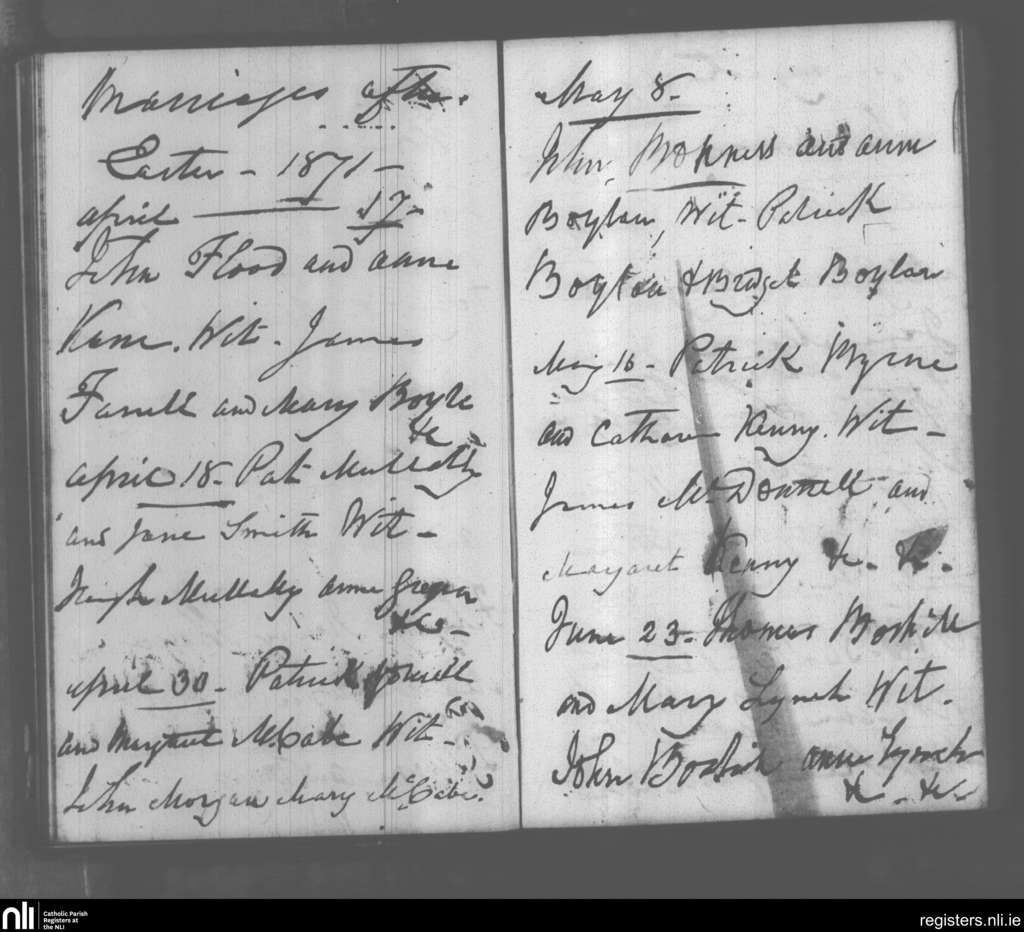 Marriages after
Easter - 1871 -
april 17 -
John Flood and anne
Kane. Wit - James
Farrell and Mary Boyle
&c
april 18 - Pat Mullally
and Jane Smith Wit -
Hugh Mullally anne
&c -
april 30 - Patrick
and Margaret McCabe Wit -
John Morgan Mary McCabe.
May 8 -
John and anne
Boylan, Wit - Patrick
Boylan & Bridget Boylan
May 16 - Patrick Byrne
and Kenny. Wit -
James McDonnell and
Margaret Kenny &c. &c.
June 23 - Thomas
and Mary Lynch Wit.
John anne Lynch
&c - &c
nli
Catholic Parish
Registers at
the NLI
registers.nli.ie